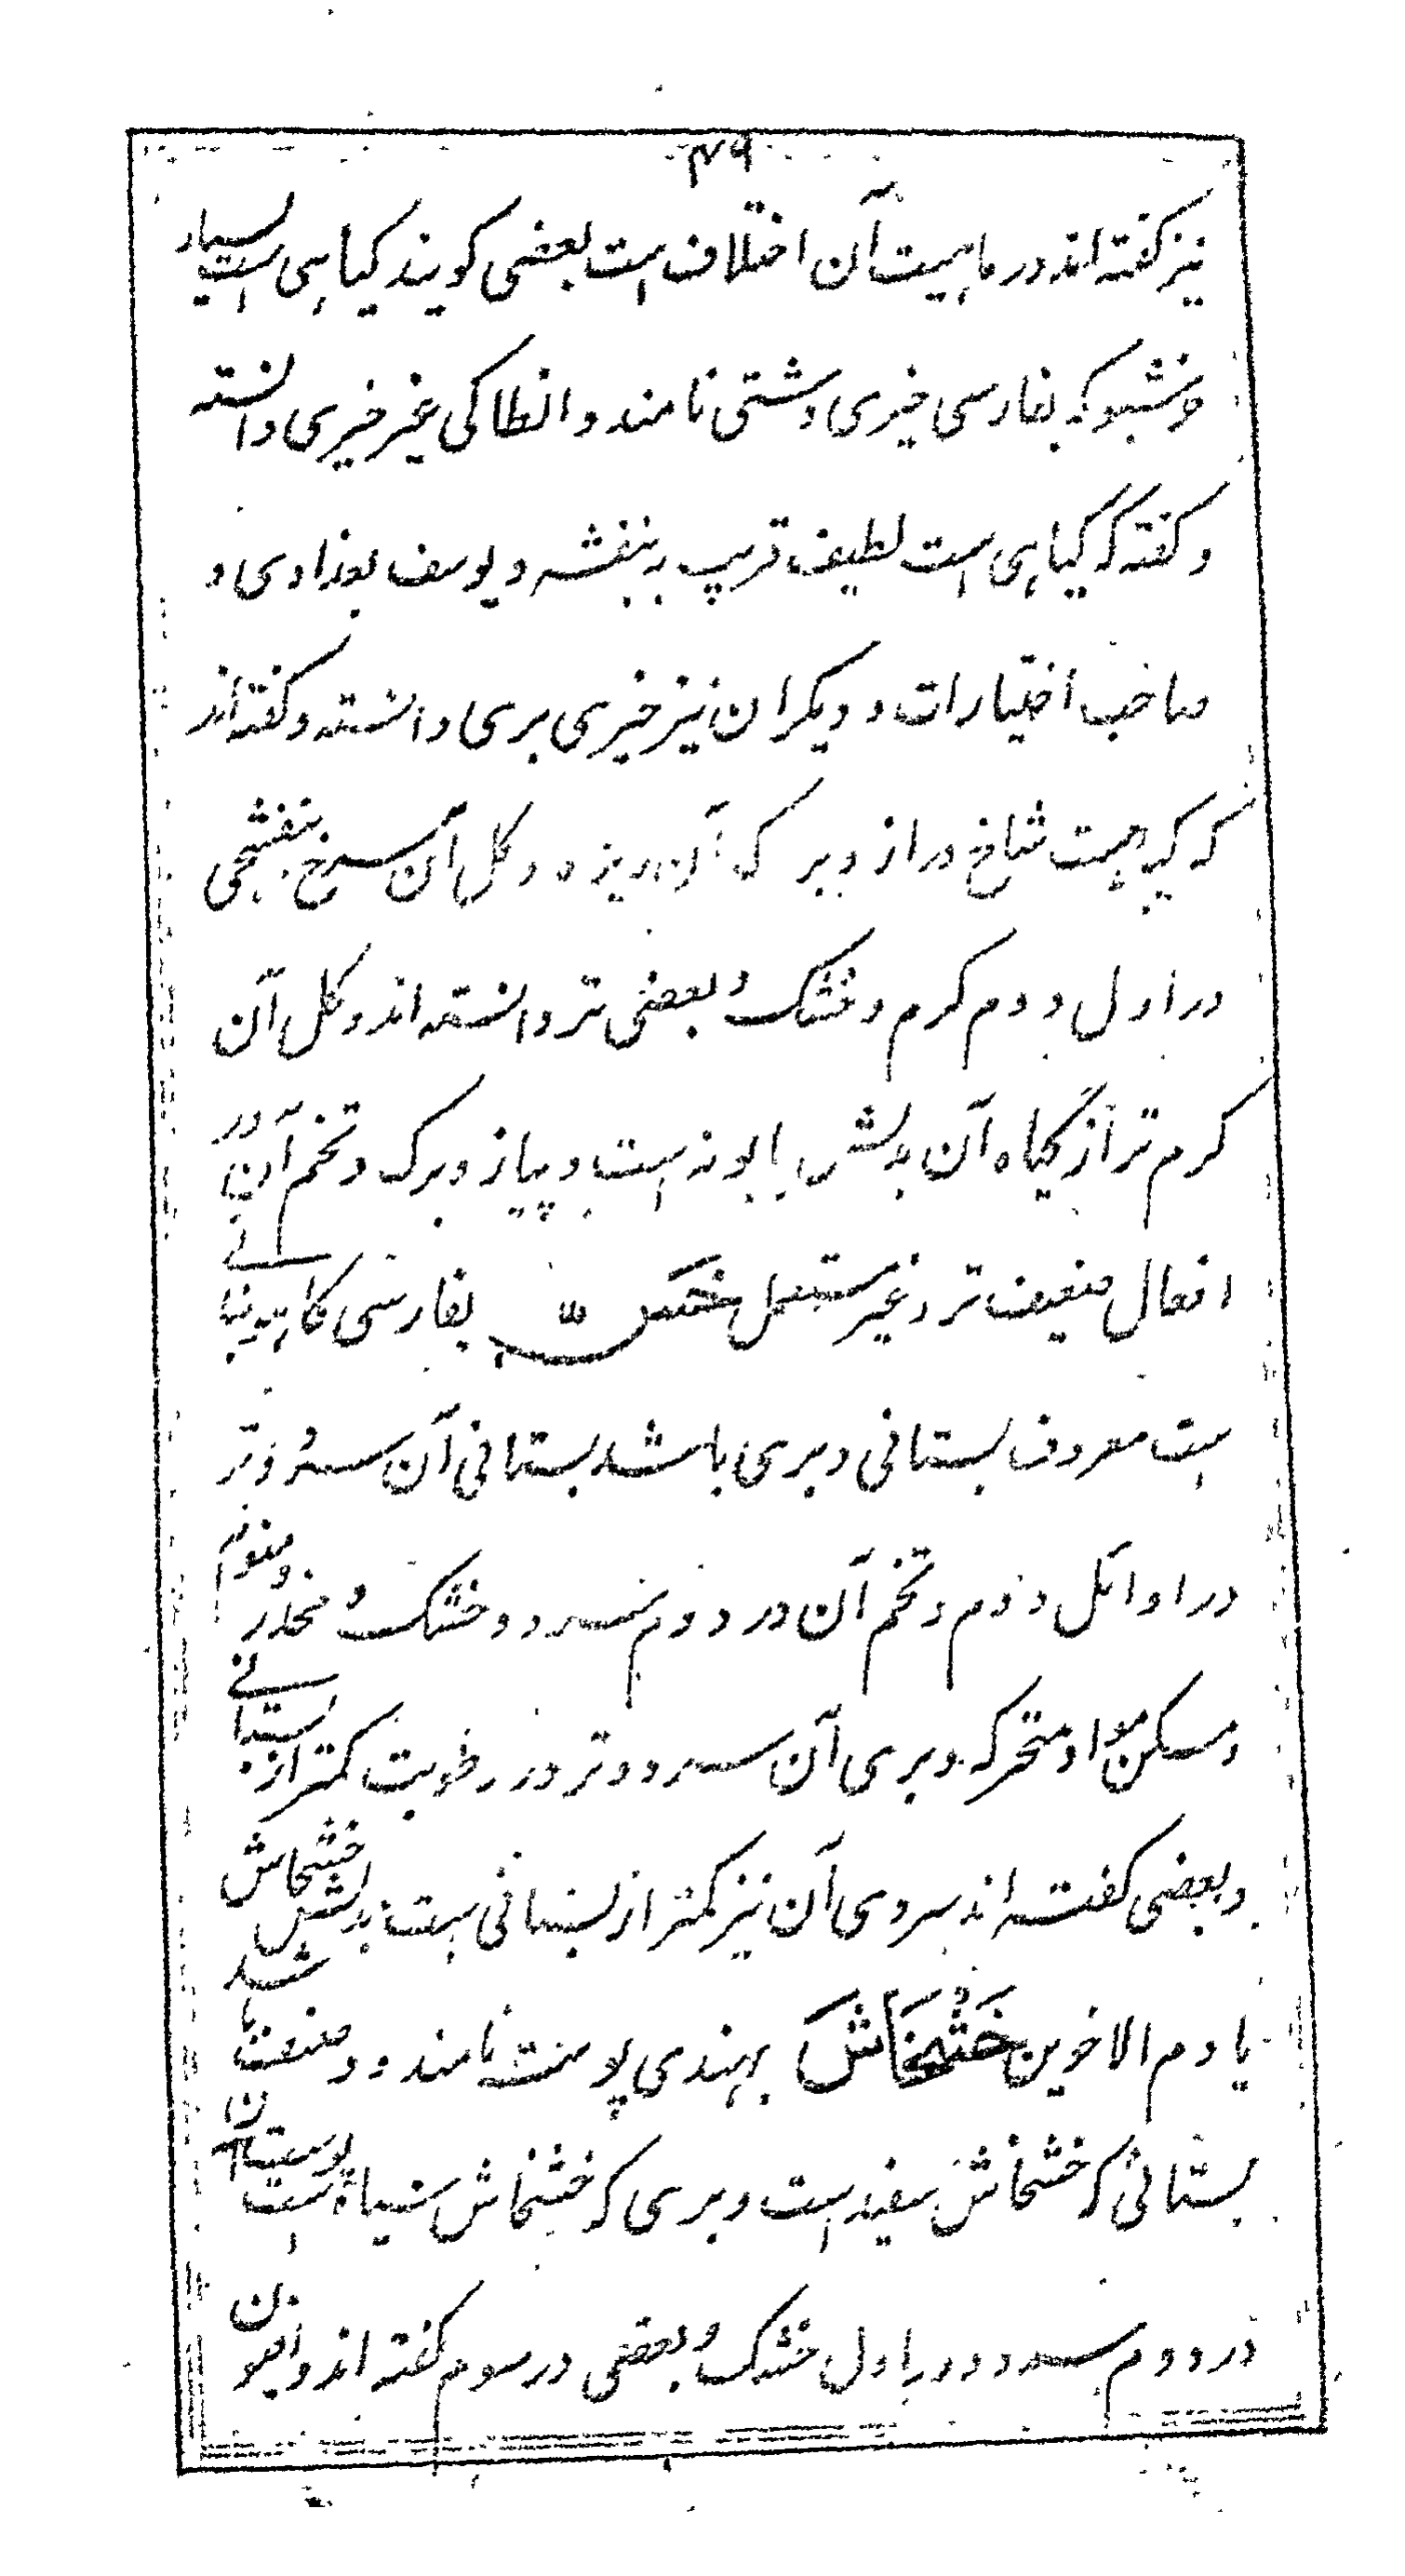 نیز کفته اند در ماهیت آن اختلاف است بعضی کویند کیاهی است بسیار
خوشبو که بفارسی خیری دشتی نامند و انطاکی غیر خیری دانسته
و کفته که کیاهی است لطیف قریب به بنفشه و یوسف بغدادی و
صاحب اختیارات و دیکران نیز خیری بری دانسته و کفته اند
که کیاهیست شاخ دراز و برک آن ریزه و کل آن سرخ بنفشجی
در اول دوم کرم و خشک و بعضی تر دانسته اند و کل آن
کرم تر از کیاه آن بدلش بابونه است و پیاز و برک و تخم آن در
افعال ضعیف تر و غیر مستعمل خس بفارسی کاهو نباتی
است معروف بستانی و بری باشد بستانی آن سرد و تر
در اوائل دوم و تخم آن در دوم سرد و خشک و مخدر و منوم
و مسکن مواد متحرکه و بری آن سرد و تر در رطوبت کمتر از بستانی
و بعضی کفته اند سردی آن نیز کمتر از بستانی است بدلش خشخاش
یا دم الاخوین خشخاش بهندی پوست نامند دو صنف باشد
بستانی که خشخاش سفید است و بری که خشخاش سیاه است پوست آن
در دوم سرد و در اول خشک و بعضی در سوم کفته اند و افیون